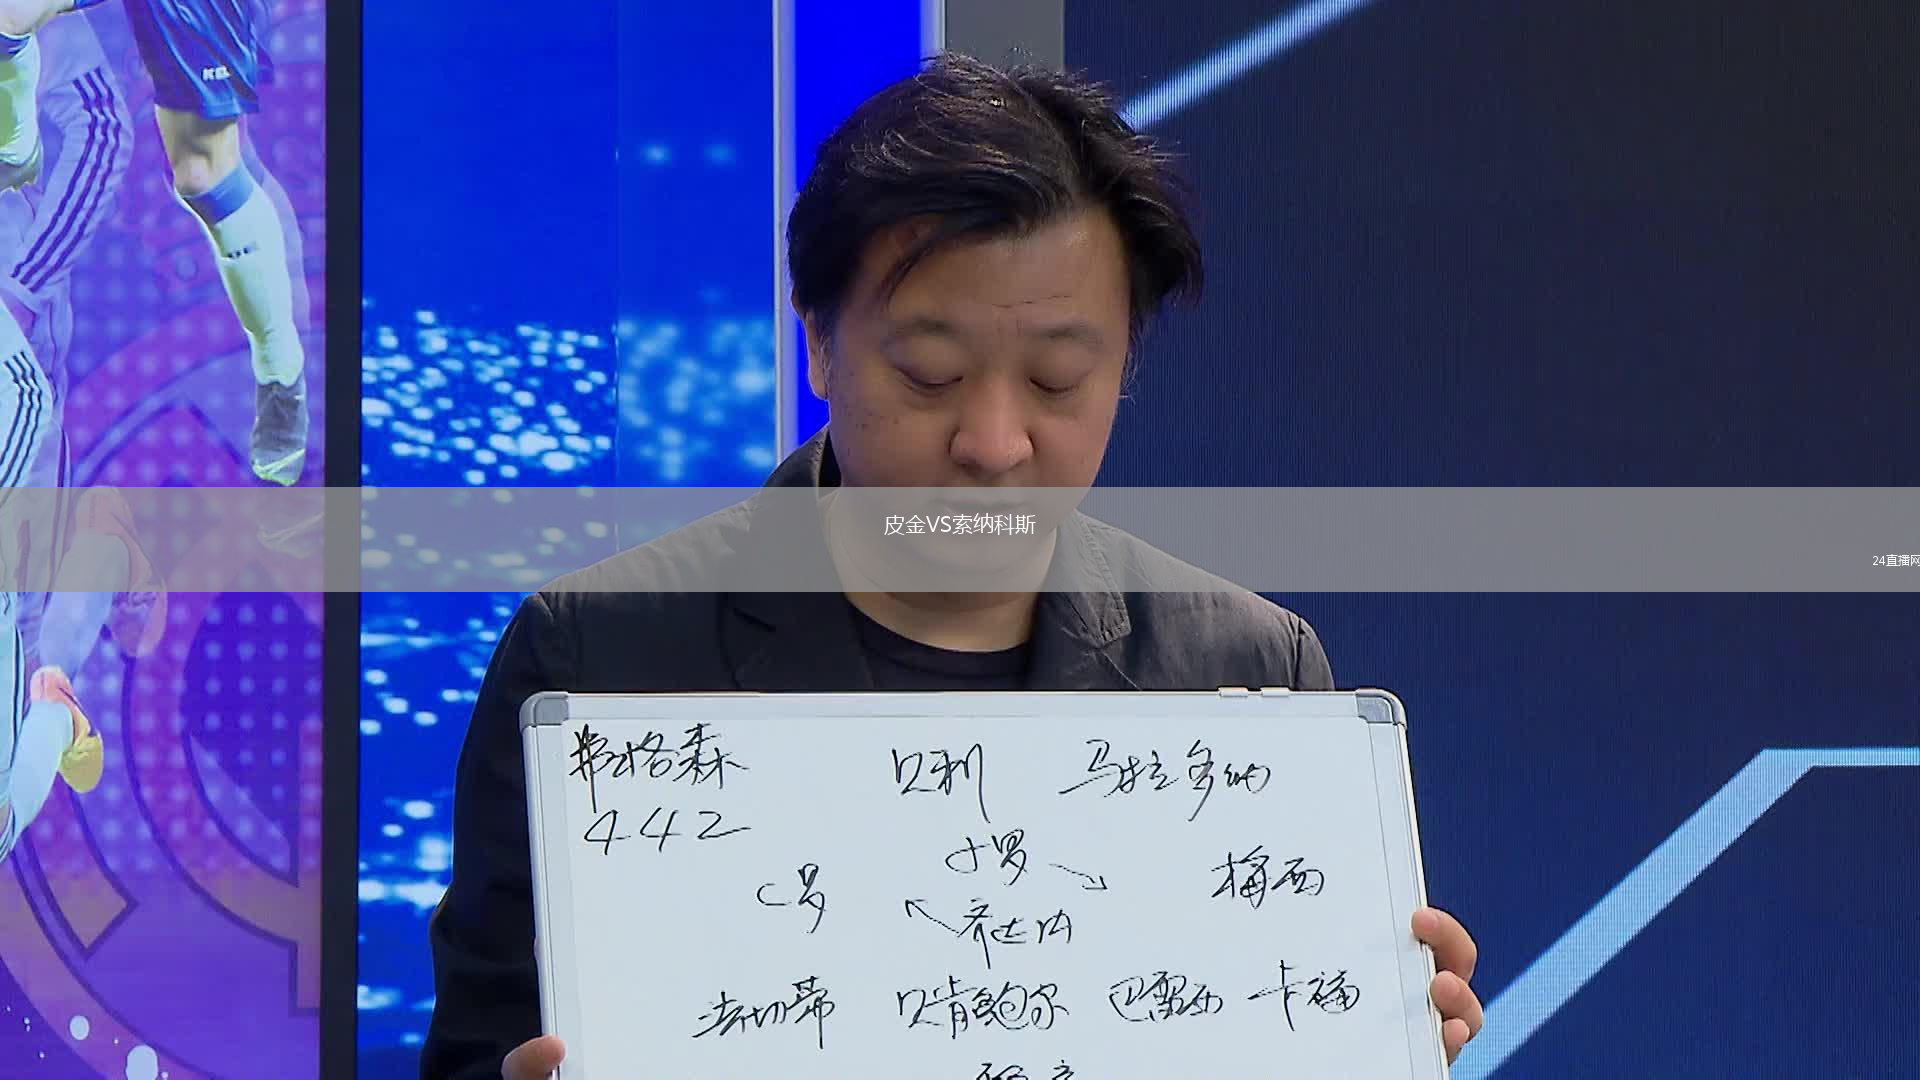 皮金VS索纳科斯
24直播网
弗格森 贝利 马拉多纳
442
小罗
C罗 梅西
齐达内
法切蒂 贝肯鲍尔 巴雷西 卡福